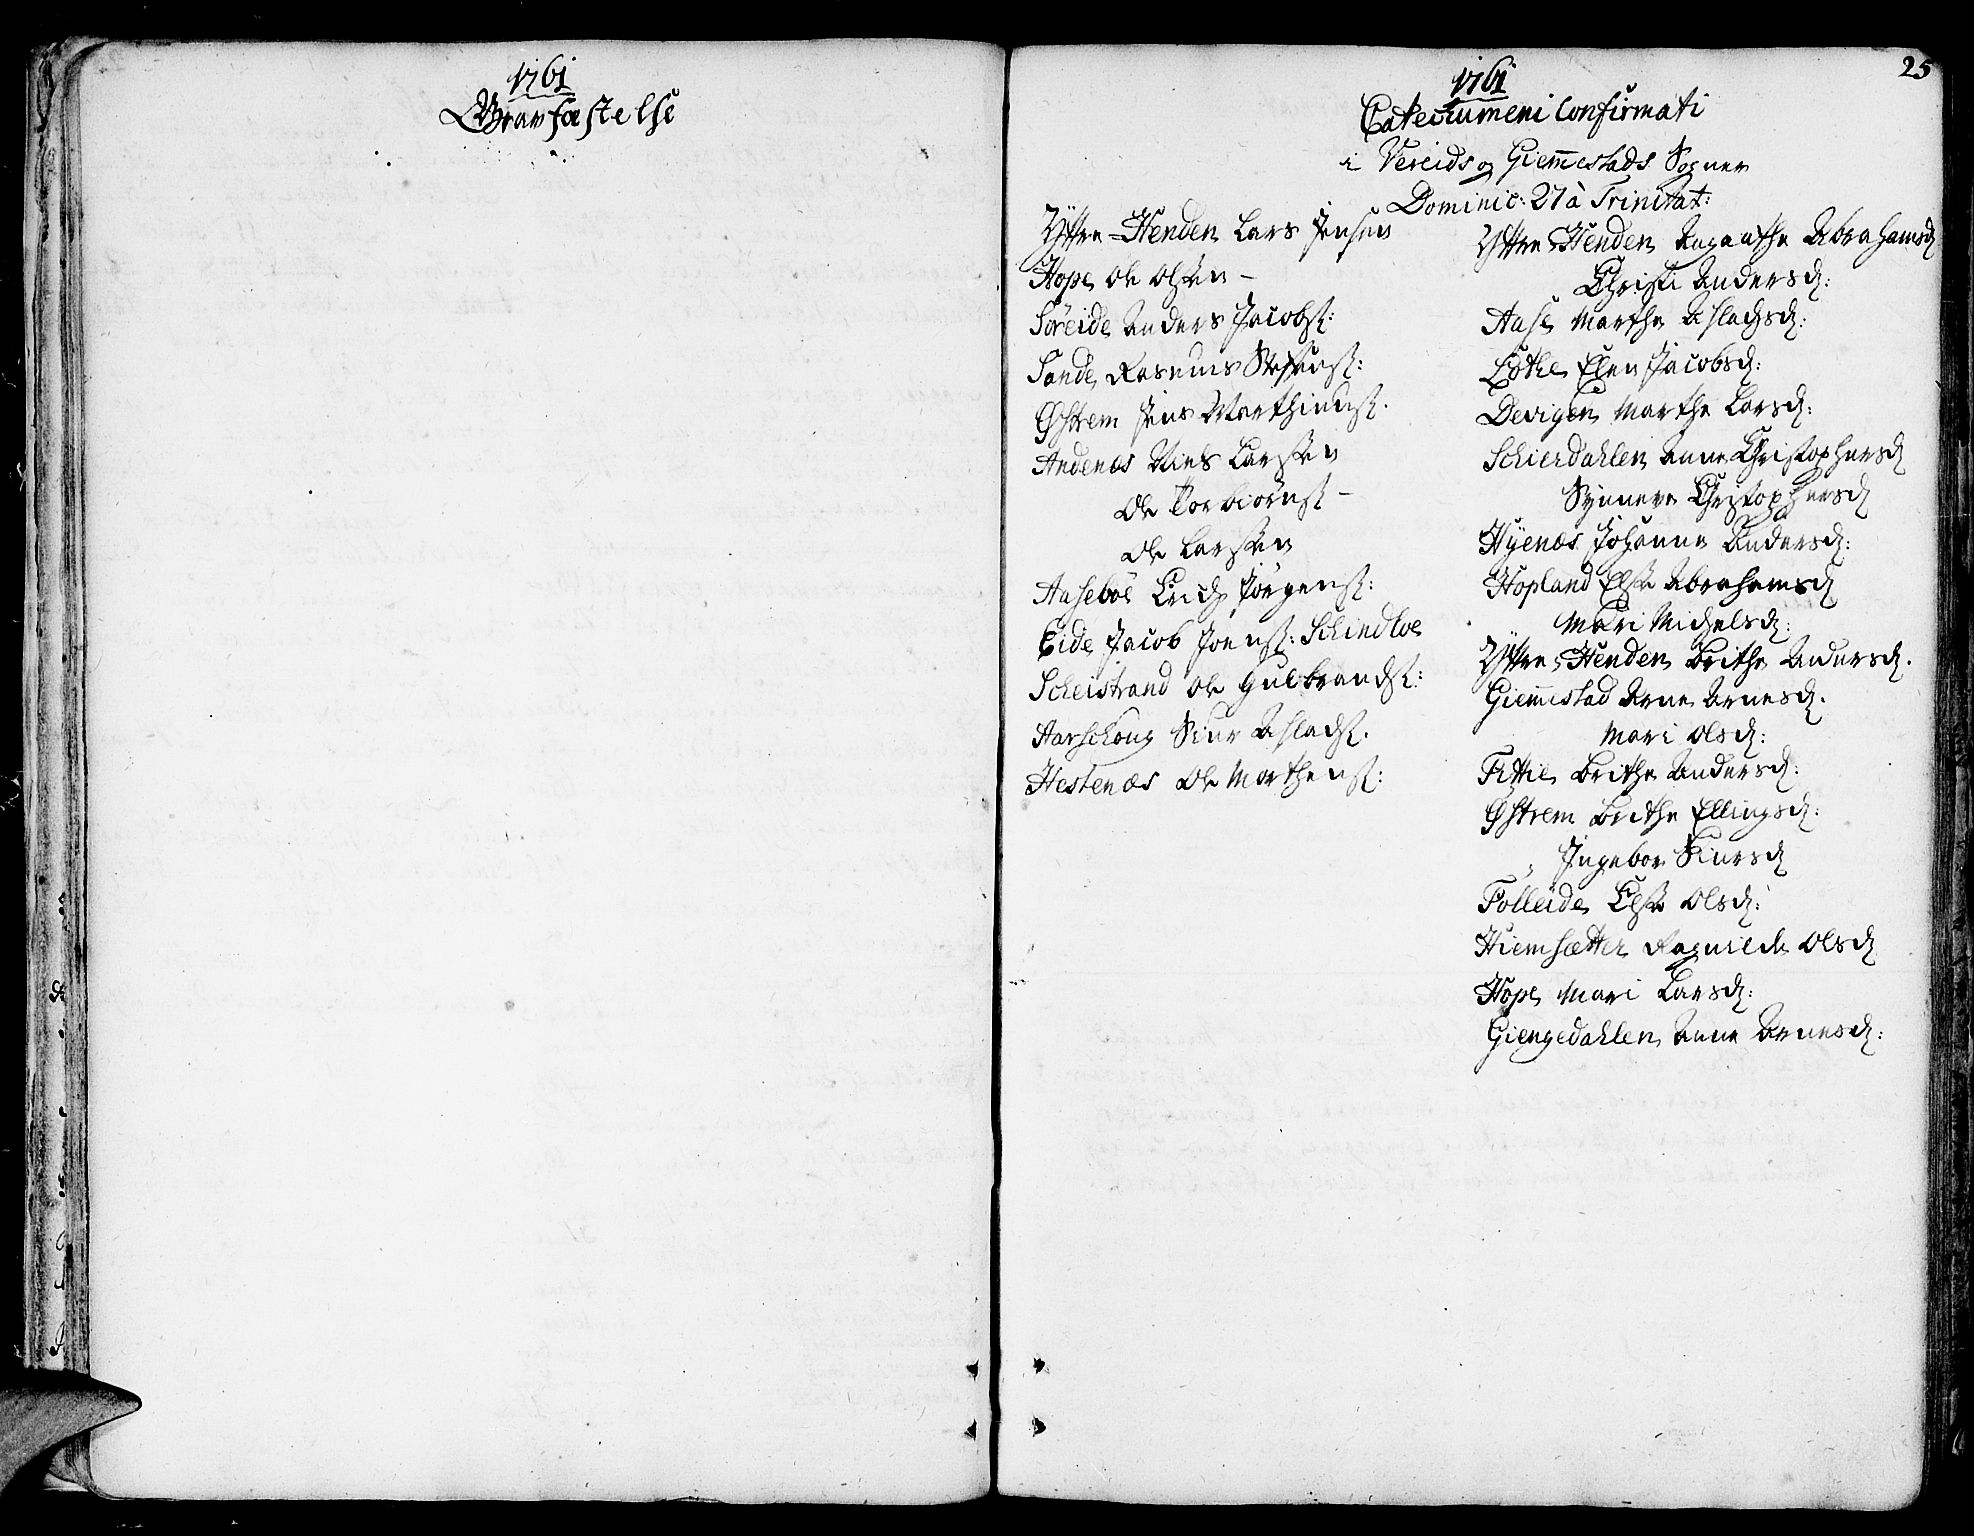 1761
Gravfæstelse
25
1761
Catechumeni Confirmati
i Vereids og Giem̄estads Sogner
Dominic: 27 à Trinitat:
Yttre-Henden Lars Jensen
Hope Ole Olssen –
Söreide Anders Jacobs:
Sande Rasmus Steffens:
Østrem Jens Marthinus.
Andenæs Niels Larssen
Ole Torbiörns –
Ole Larssen
Aaseböe Erich Jörgens:
Eide Jacob Joens: Schindloe
Scheistrand Ole Gulbrands:
Aarschoug Siur Aslads.
Hestenæs Ole Marthens:
Yttre-Henden Agathe Abrahamsd
Christi Andersd:
Aase Marthe Aslachsd:
Löthe Elen Jacobsd:
Devigen Marthe Larsd:
Schierdahlen Anne Christophersd
Synneve Christophersd
Hÿenæs Johanne Andersd:
Hopland Else Abrahamsd
Mari Michelsd:
Yttre-Henden Brithe Andersd.
Giem̄estad Arne Arnesd.
Mari Olsd:
Fittie Brithe Andersd:
Østrem Brithe Ellingsd:
Ingebor Siursd
Folleide Else Olsd:
Hiemsætter Ragnilde Olsd
Hope Mari Larsd:
Giengedahlen Anne Arnesd: